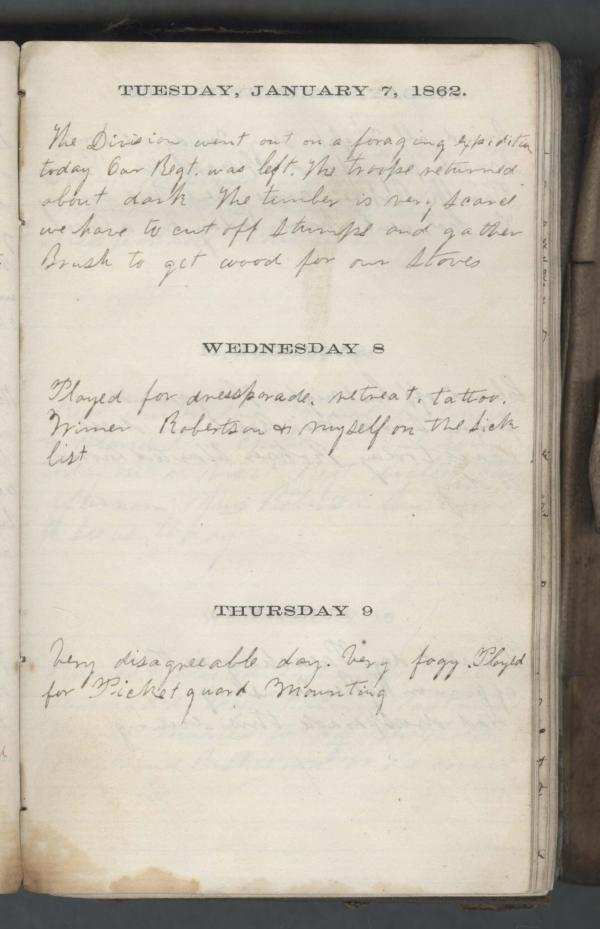 TUESDAY, JANUARY 7, 1862.
The Division went out on a foraging expidition
today Our Regt. was left. The troops returned
about dark The timber is very scarce
we have to cut off stumps and gather
Brush to get wood for our stoves
WEDNESDAY 8
Played for dressparade, retreat, tattoo.
Robertson & myself on the sick
list
THURSDAY 9
Very disagreeable day. Very fogy. Played
for Picket guard Mounting